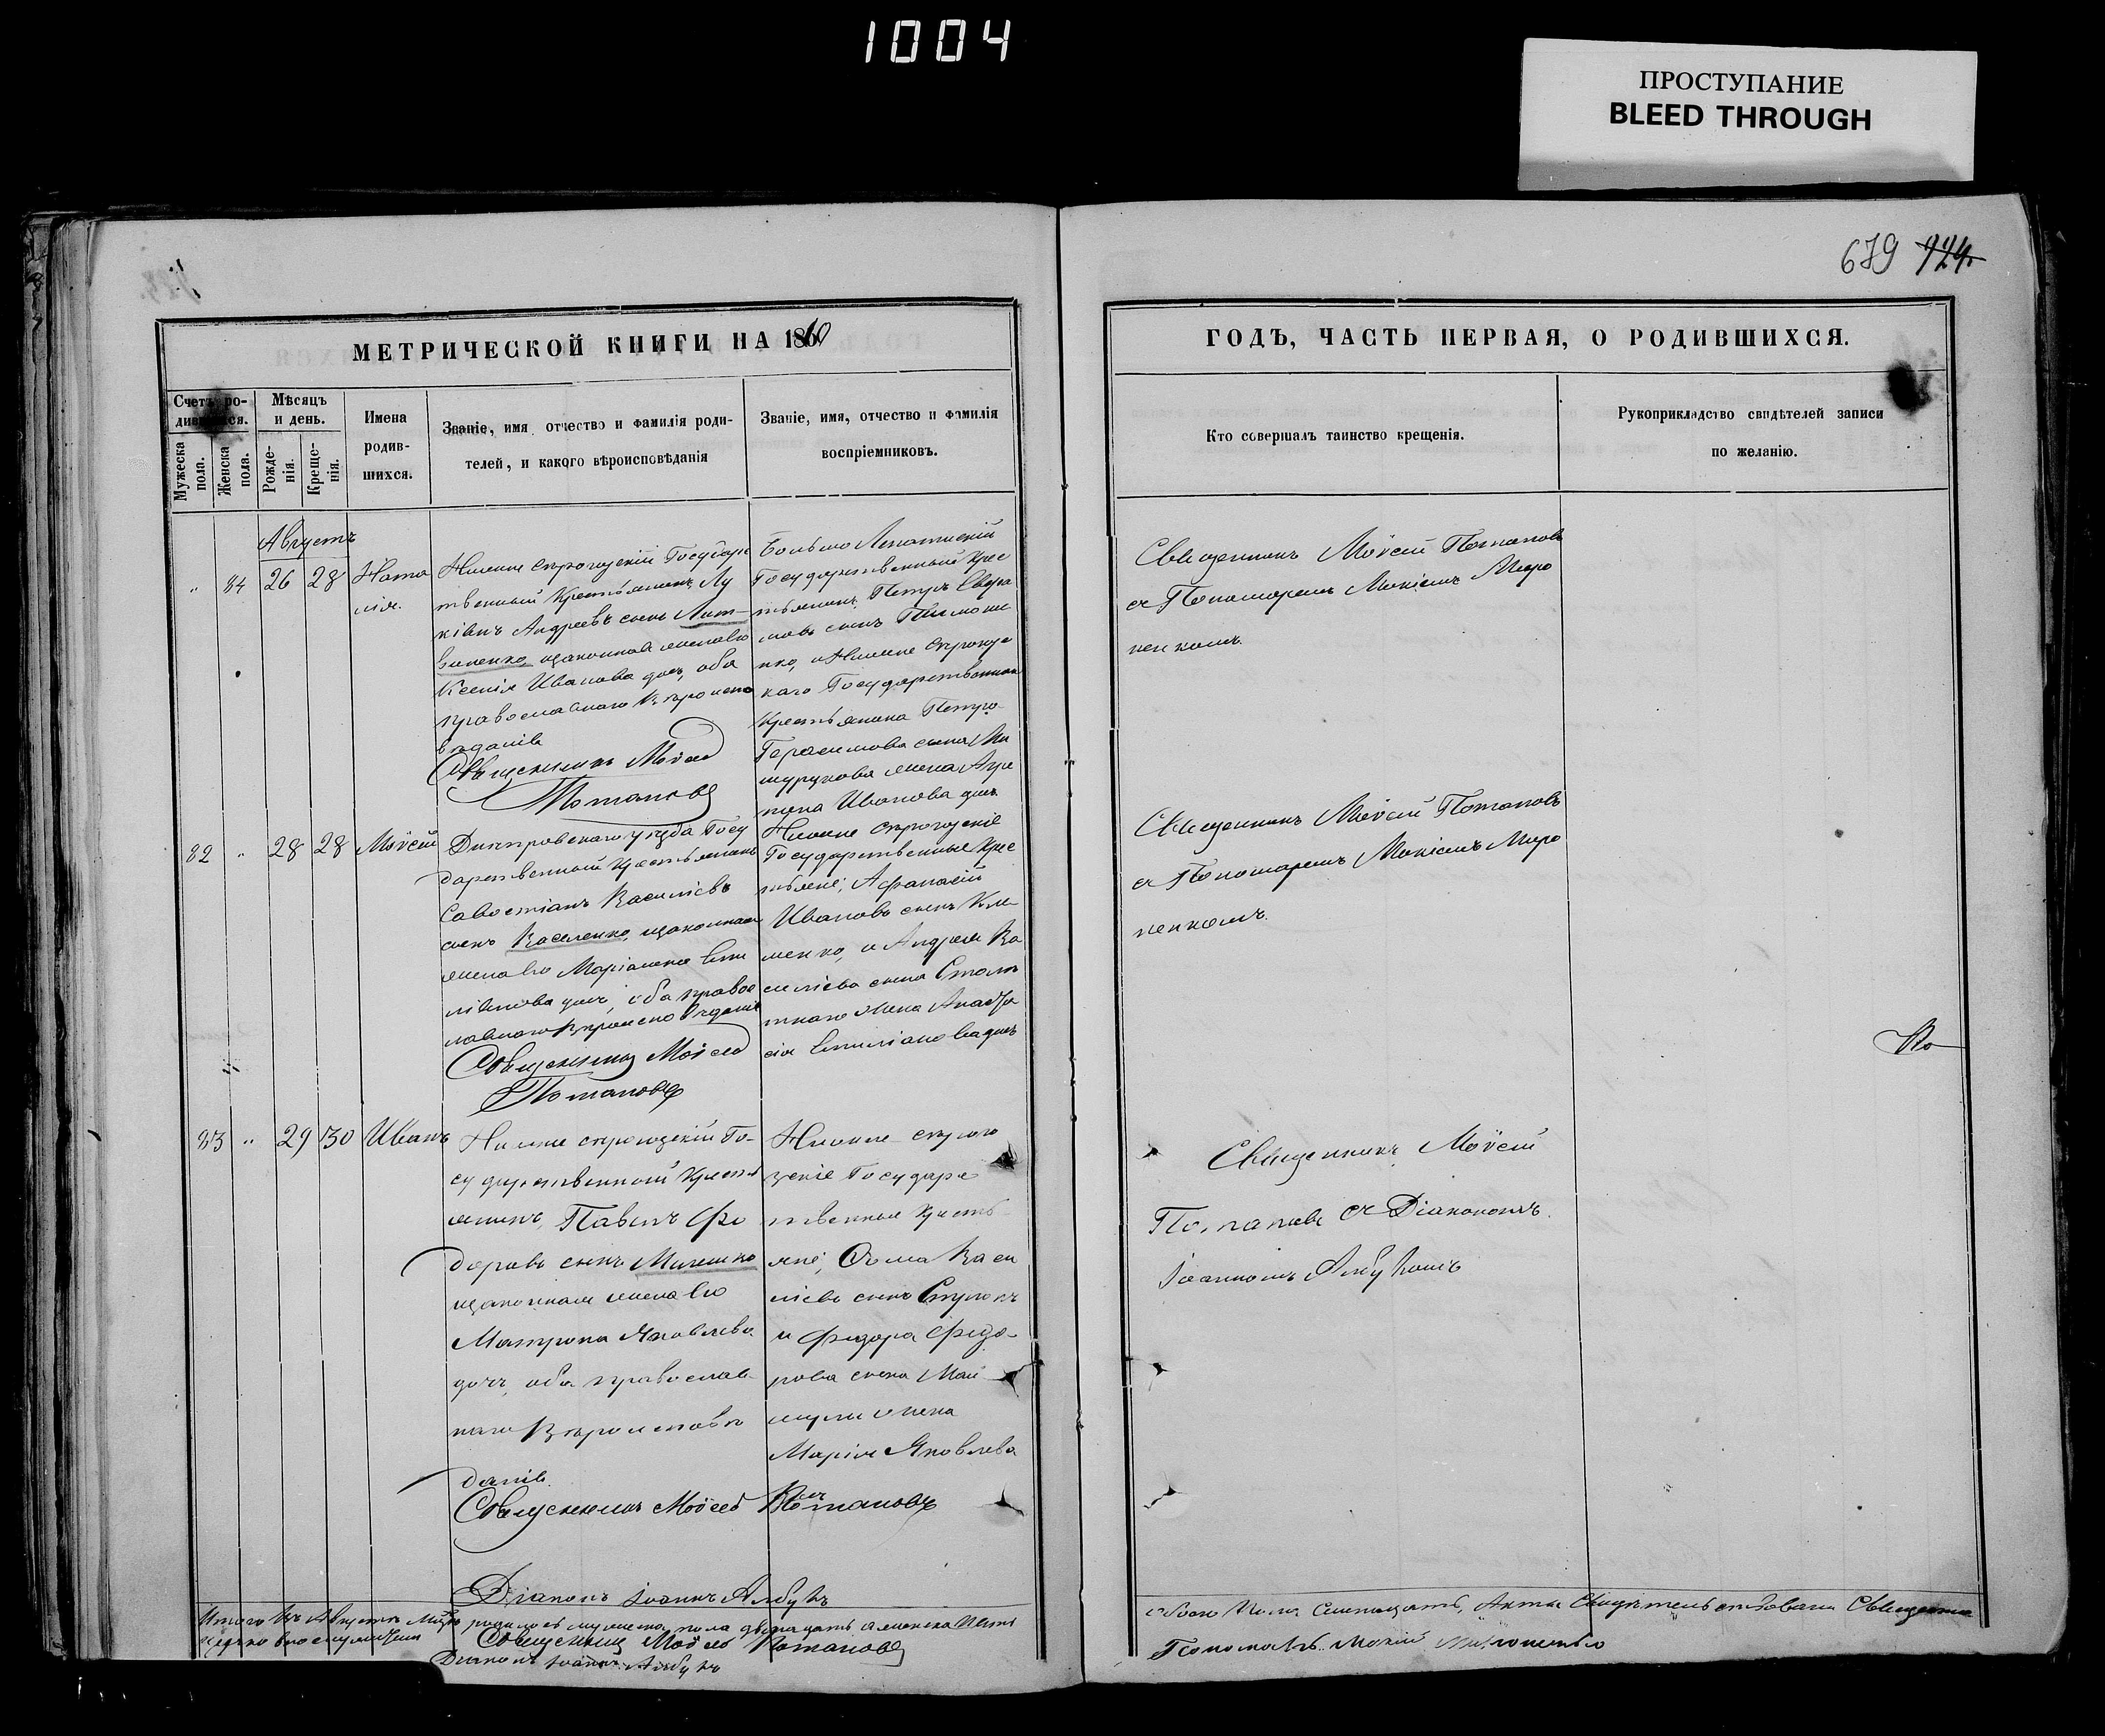 1004
ПРОСТУПАНИЕ
BLEED THROUGH
679 924
МЕТРИЧЕСКОЙ КНИГИ НА 1860
ГОДЪ, ЧАСТЬ ПЕРВАЯ, О РОДИВШИХСЯ.
Счетъ родившихся.
Мужеска пола.
Женска пола.
Мѣсяцъ и день.
Рожде-
нія.
Креще-
нія.
Имена
родив-
шихся.
Званіе, имя отчество и фамилія роди-
телей, и какого вѣроисповѣданія
Званіе, имя, отчество и фамилія
воспріемниковъ.
Кто совершалъ таинство крещенія.
Рукоприкладство свидѣтелей записи
по желанію.
Августъ
84 26 28 Ната
лія.
Нижне Сѣрогозскій Государс
твенный Крестьянинъ, Лу
кіанъ Андреевъ сынъ Лит-
виненко, изаконная женаево
Ксенія Иванова доч, оба
православнаго Вѣроиспо
вѣданія
Священникъ Моѵсей
Потаповъ
Государственный Крес
тьянинъ, Петръ
сынъ
нко, и Нижне Сѣрогоз
каго Государственнаго
Крестьянина Петра
Герасимова сына
жена
Иванова доч
Священникъ Моѵсей Потаповъ
съ Пономаремъ Мокіемъ Миро
ненкомъ.
82 " 28 28 Моѵсей
Днѣпровскаго уѣзда Госу
дарственный Крестьянинъ
Савостіанъ Василіевъ
сынъ Василенко, изаконная
женаево Маріамна Еми
ліанова доч, оба правос
лавнаго Вѣроисповѣданія
Священникъ Моѵсей
Потаповъ
Нижне Сѣрогозскіе
Государственные Крес
тьяне, Афанасій
Ивановъ сынъ Кли
менко, и Андрея Ва
силіева сына
жена Анаста
сія Емиліановадоч
Священникъ Моѵсей Потаповъ
съ Пономаремъ Мокіемъ Миро
ненкомъ.
83 " 29 30 Иванъ
Нижне Сѣрогозскій Го-
сударственный Кресть
янинъ, Павелъ Фе
доровъ сынъ
изаконная женаево
Матрона Яковлева
доч, оба православ-
наго Вѣроисповѣ
данія.
Священникъ Моѵсей Потаповъ
Нижне Сѣрого
зскіе Государс
твенные Кресть-
яне, Ѳома Васи
ліевъ сынъ
и Федора Федо-
рова сына
жена
Марія Яковлева
доч
Священникъ Моѵсей
Потаповъ съ Діакономъ
Іоанномъ
Діаконъ Іоаннъ
Итого въ Августѣ родилось мужеска пола двѣнадцать а женска
обоего пола Свидѣтельствовали Священникъ
Священникъ Моѵсей Потаповъ
Пономарь Мокій Мироненко
Діаконъ Іоаннъ